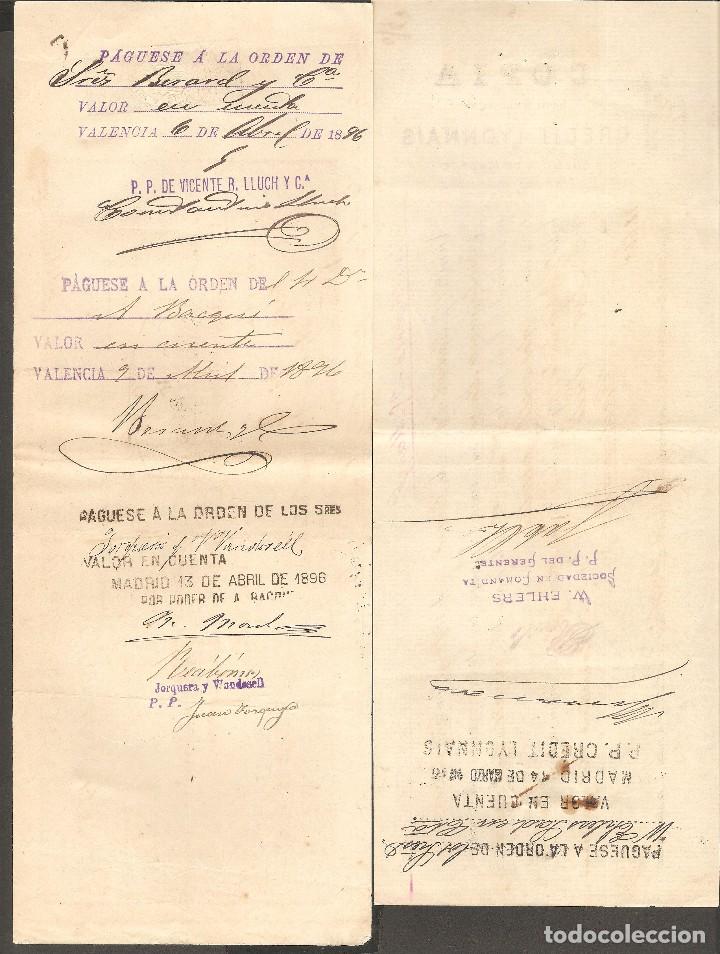 PÁGUESE Á LA ORDEN DE
Sres Berard y Ca
VALOR en cuenta
VALENCIA 6 DE Abril DE 1896
P. P. DE VICENTE R. LLUCH Y C.A
Lluch
PÁGUESE A LA ORDEN DE
A Bacqué
VALOR en cuenta
VALENCIA 9 DE Abril DE 1896
PAGUESE A LA ORDEN DE LOS SRES
Jorquera y Wandosell
VALOR EN CUENTA
MADRID 13 DE ABRIL DE 1896
POR PODER DE A. BACQUE
Recibimos
Jorquera y Wandosell
P. P.
Juan Jorquera
COPIA
CREDIT LYONNAIS
PAGUESE A LA ORDEN DE los Sres
W. Ehlers Socd en Cta
VALOR EN CUENTA
MADRID 14 DE MARZO DE
P.P. CREDIT LYONNAIS
W. EHLERS
SOCIEDAD EN COMANDITA
P. P. DEL GERENTE.
todocoleccion